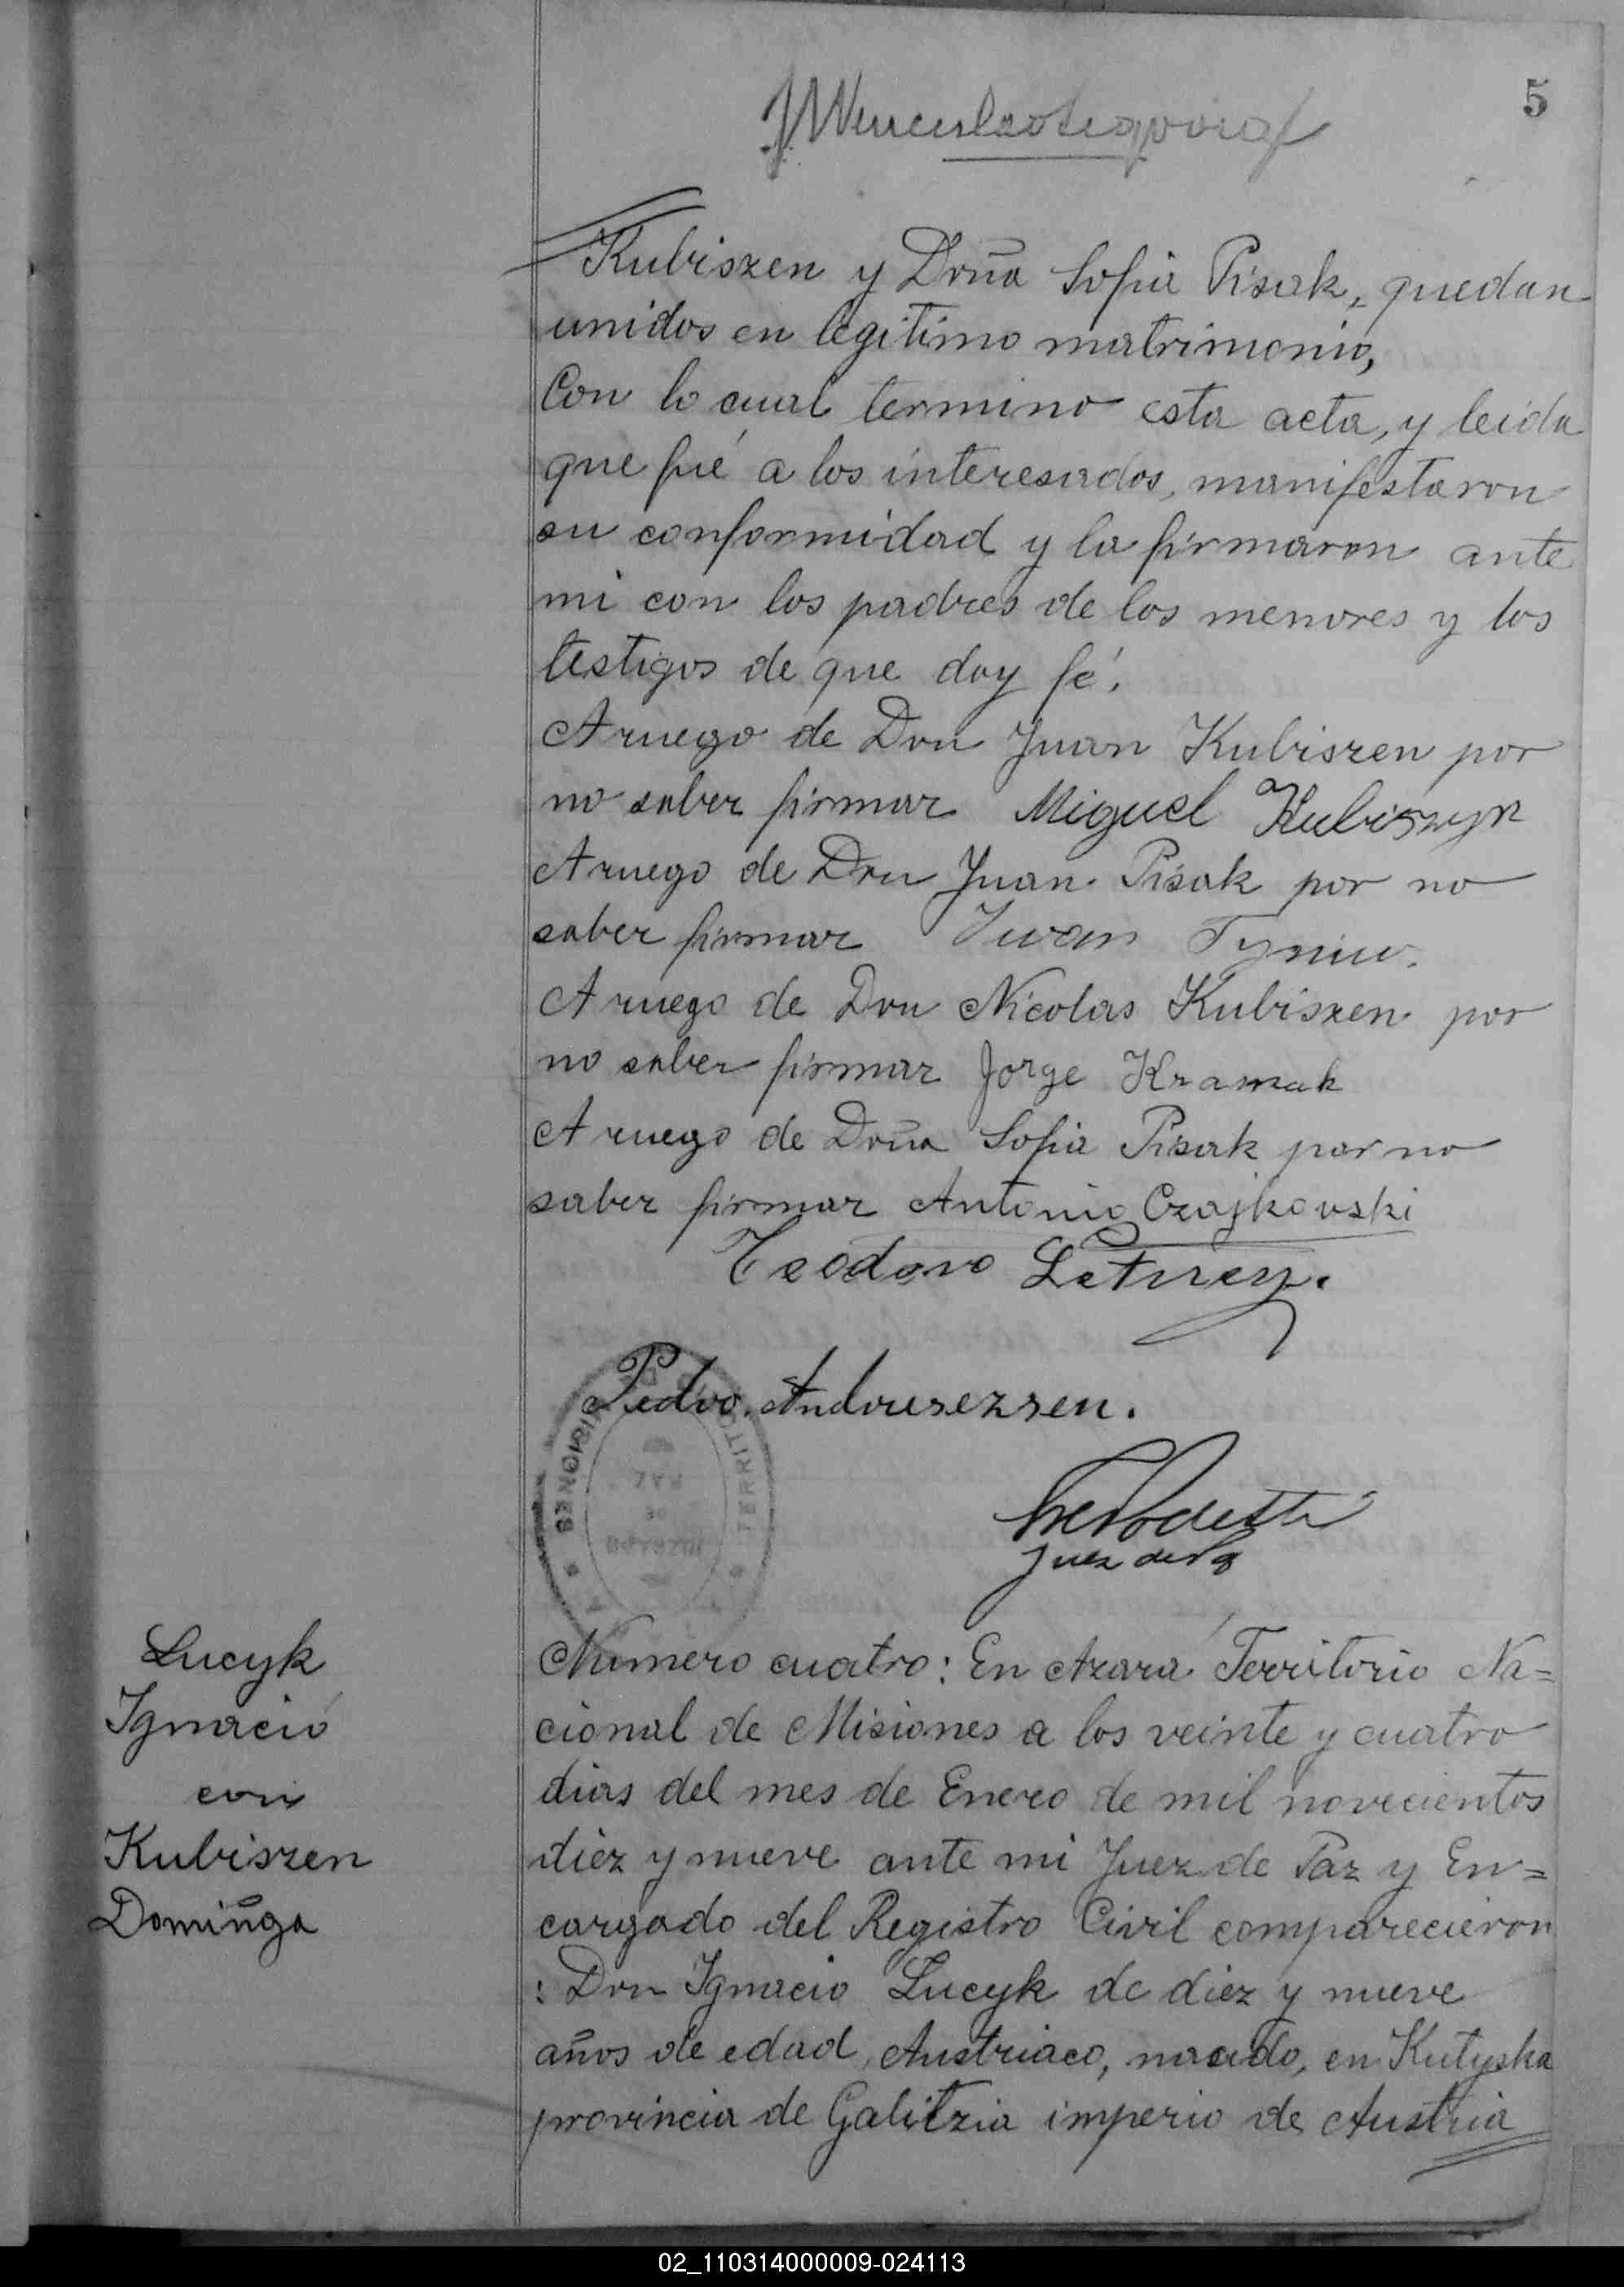 5
Kubiszen y Doña Sofia Pisak, quedan
unidos en legitimo matrimonio,
Con lo cual termino esta acta, y leida
que fué a los interesados, manifestaron
su conformidad y la firmaron ante
mi con los padres de los menores y los
testigos de que doy fé.
A ruego de Don Juan Kubiszen por
no saber firmar Miguel Kubiszyn
A ruego de Don Juan Pisak por no
saber firmar Iwan
A ruego de Don Nicolas Kubiszen por
no saber firmar Jorge Kramak
A ruego de Doña Sofia Pisak por no
saber firmar Antonio Czajkovski
Teodoro
Pedro
MISIONES
TERRITO
Juez de
Lucyk
Ignacio
con
Kubiszen
Dominga
Número cuatro: En Azara Territorio Na=
cional de Misiones a los veinte y cuatro
dias del mes de Enero de mil novecientos
diez y nueve ante mi Juez de Paz y En=
cargado del Registro Civil comparecieron
: Don Ignacio Lucyk de diez y nueve
años de edad, Austriaco, nacido, en Kutyska
provincia de Galitzia imperio de Austria
02_110314000009-024113